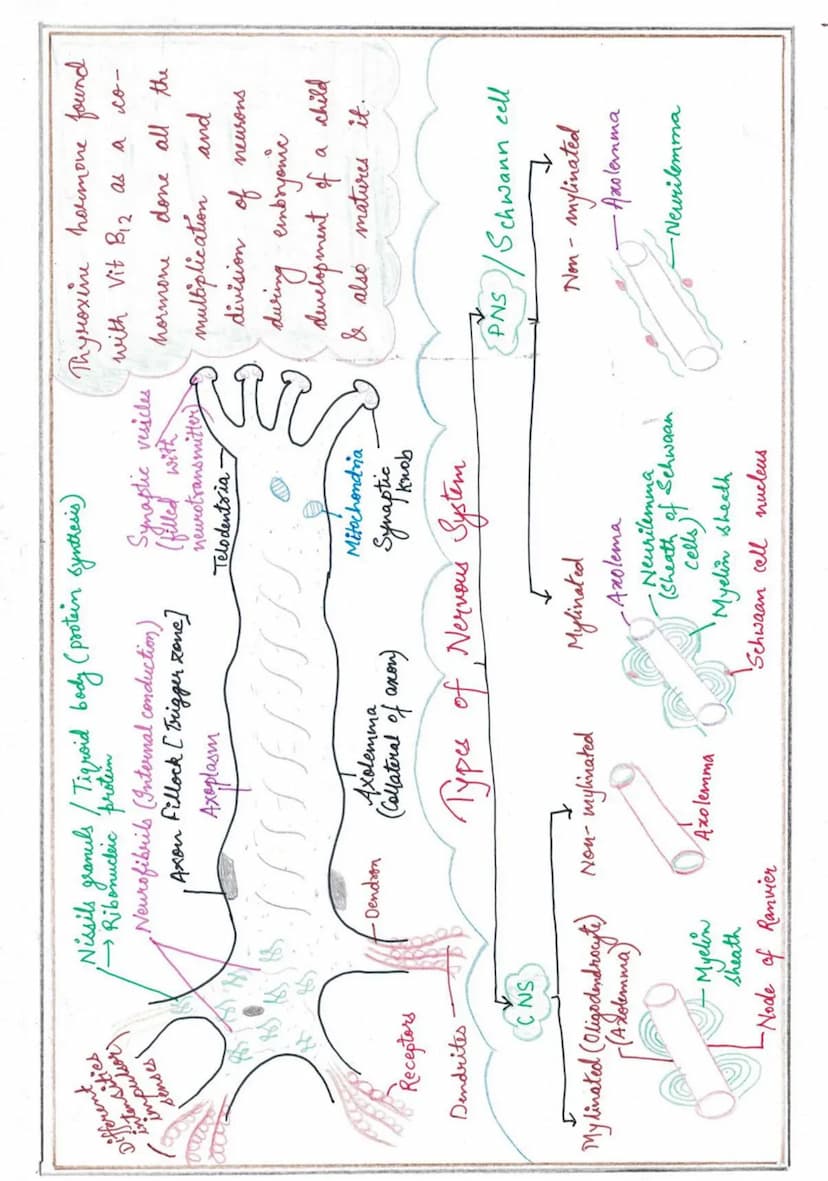 Nissils granuls / Tigroid body (protein synthesis)
→ Ribonucleic protein
Neurofibrils (Internal conduction)
Axon fillock [Trigger zone]
Axoplasm
Synaptic vesicles
(filled with
neurotransmitter)
Telodentria
Different
intensities
impulsor
senses
Receptors
Dendrites
Dendron
Axolemma
(Collateral of axon)
Mitochondria
Synaptic
Knob
Thyroxine hormone found
with Vit B12 as a co-
hormone done all the
multiplication and
division of neurons
during embryonic
development of a child
& also matures it.
Types of Nervous System
CNS
PNS / Schwann cell
Mylinated (Oligodendrocyte)
(Axolemma)
Myelin
sheath
Node of Ranvier
Non-mylinated
Axolemma
Mylinated
Axolema
Neurilemma
(Sheath of Schwaan
cells)
Myelin sheath
Schwaan cell nucleus
Non-mylinated
Axolemma
Neurilemma